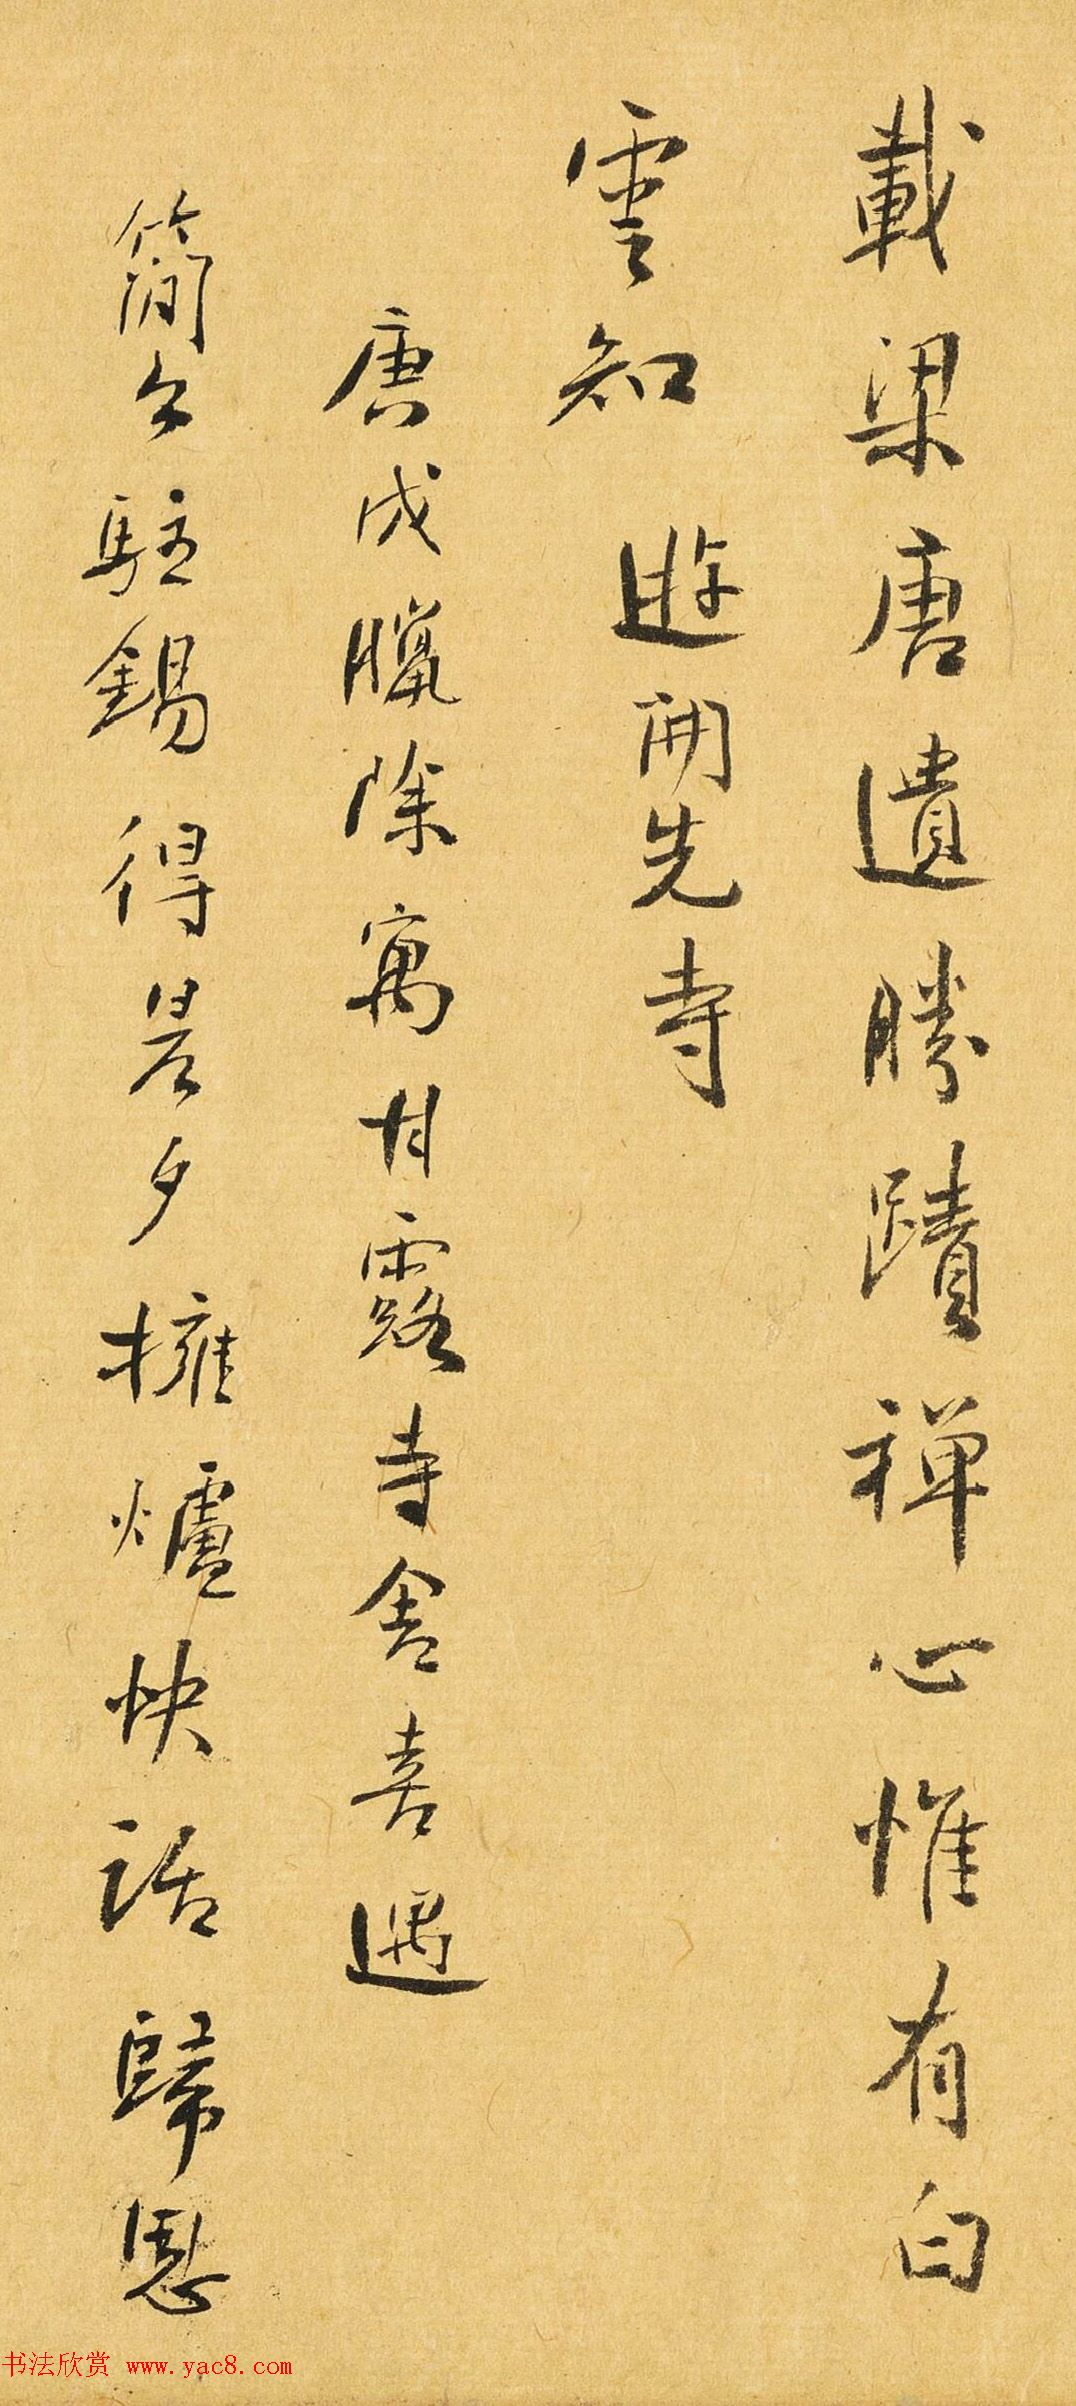 載梁唐遺勝蹟禪心惟有白
雲知 遊開先寺
庚戌臘除寓甘露寺舍喜遇
簡公駐錫得晨夕擁爐快話歸思
书法欣赏 www.yac8.com